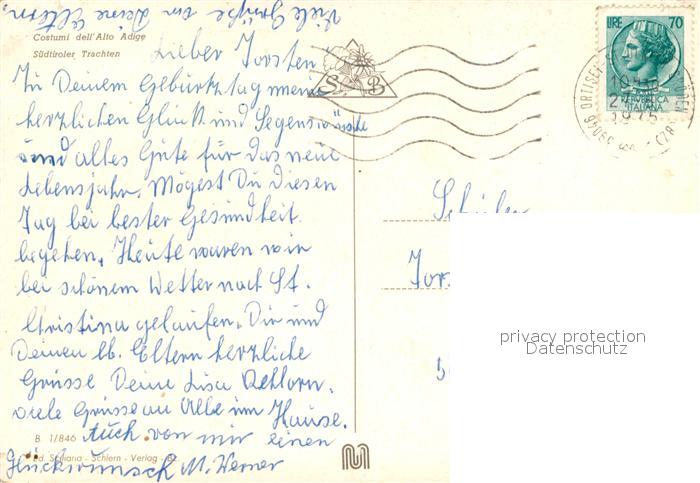 Viele Grüße an Deine Eltern.
Costumi dell'Alto Adige
Südtiroler Trachten
Lieber Torsten
Zu Deinem Geburtstag meine
herzlichen Glück und Segenswünsche
und alles Gute für das neue
Lebensjahr. Mögest Du diesen
Tag bei bester Gesundheit
begehen. Heute waren wir
bei schönem Wetter nach St.
Christina gelaufen. Dir und
Deinen lb. Eltern herzliche
Grüsse Deine Lisa
viele Grüsse an Alle im Hause.
B 1/846 Auch von mir einen
Ed. Schlern - Verlag - Bz.
Glückwunsch M. Werner
S B
LIRE 70
REPVBBLICA
ITALIANA
ORTISEI
1975
39046
Schüler
privacy protection
Datenschutz